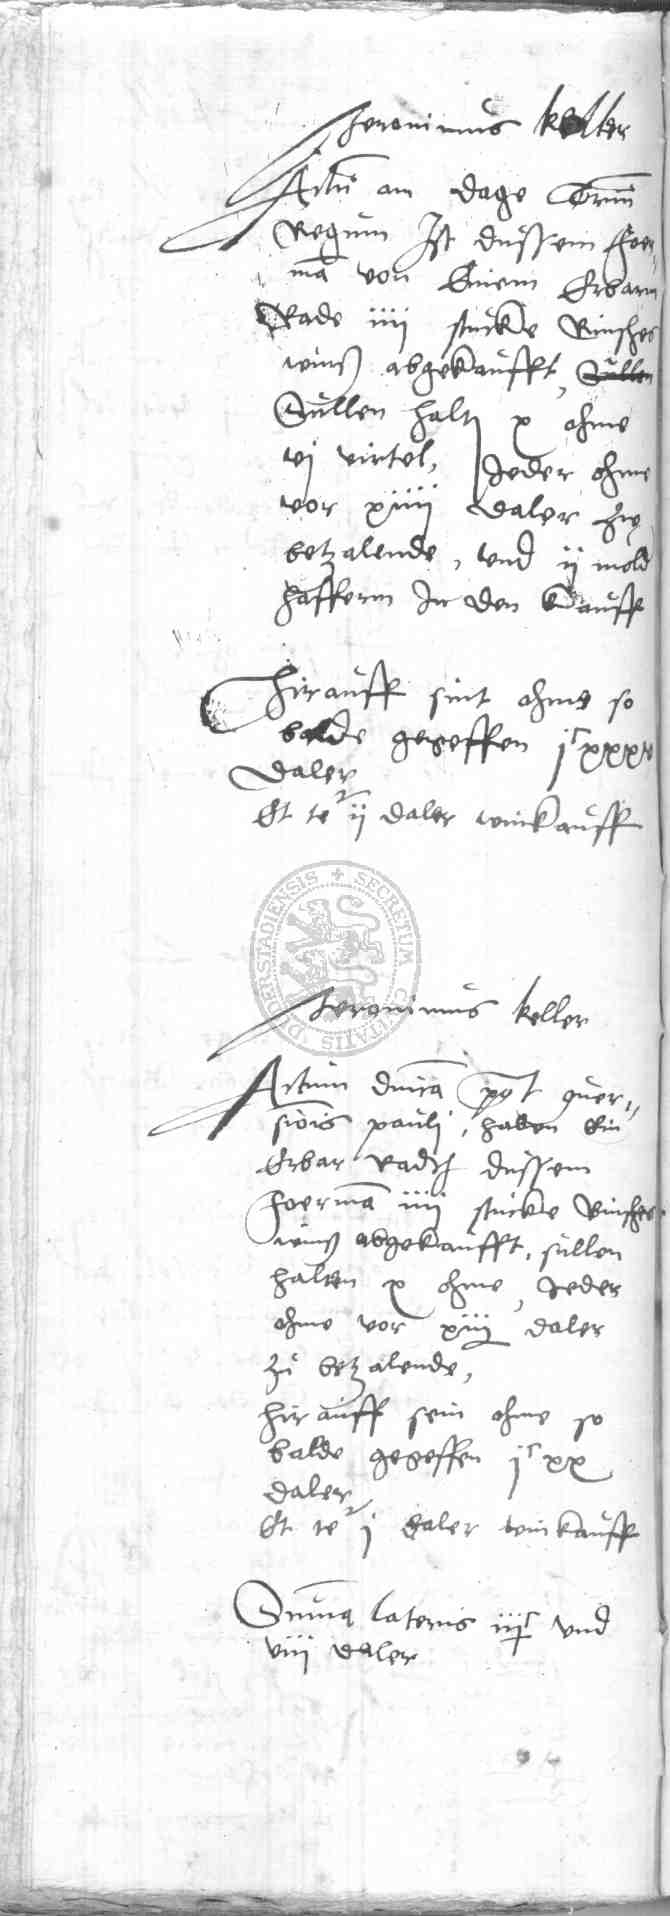 Jeronimus keller
Actu am dage Trium
Regum Ist dussem foer-
ma von Einem Erbarn
Rade iiii stucke Rinsches
wins abgekaufft,
Sullen halt x ohme
vj virtel, Jeder ohme
vor xiiii daler zu
betzalende, vnd ij mold
haffern In den kauff
Hirauff sint ohme so
balde gegeffen jc xxxv
Daler
Et te ij daler winkauff
SECRETUM CIVITATIS DUDERSTADIENSIS
Jeronimus keller
Actum dnica post conver-
siois pauli, haben Ein
Erbar Radth dussem
foerma iiii stucke Rinsches
wins abgekaufft, sullen
halten x ohme, Jeder
ohme vor xiiij daler
zu betzalende,
hirauff sein ohme so
balde gegeffen jc xx
daler
Et te j daler winkauff
Suma lateris iijc vnd
viii daler